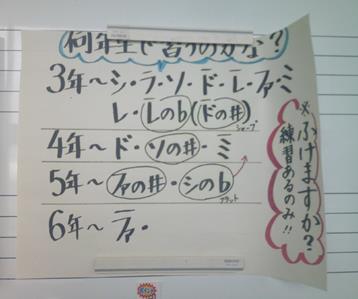 何年生で習うのかな？
3年～シ・ラ・ソ・ド̅・レ̅・ファ・ミ
レ・レ̅の♭(ド̅の♯)
シャープ
4年～ド・ソの♯・ミ̅
5年～ファの♯・シの♭
フラット
6年～ファ̅・
※ふけますか？
練習あるのみ!!